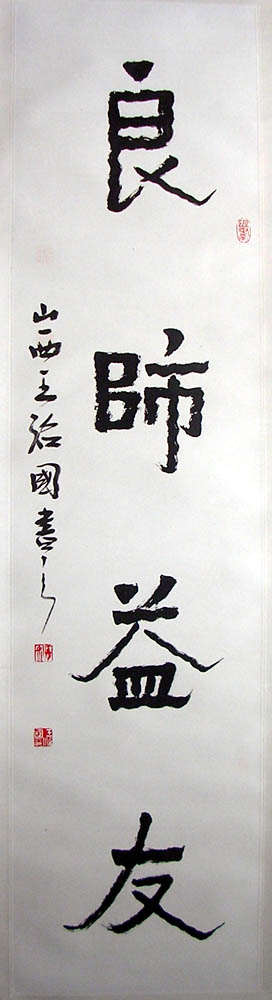 良師益友
山西王治國書之